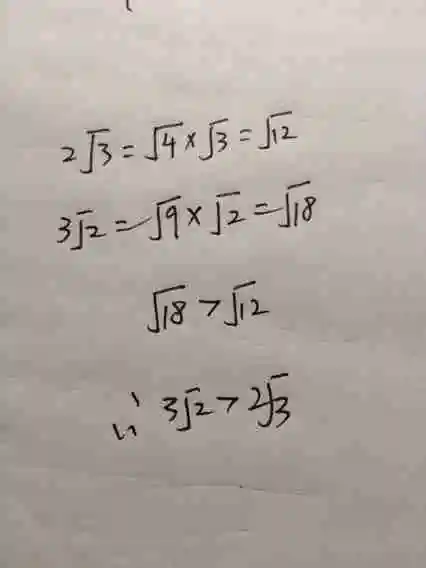 2√3=√4×√3=√12
3√2=√9×√2=√18
√18>√12
∴ 3√2>2√3